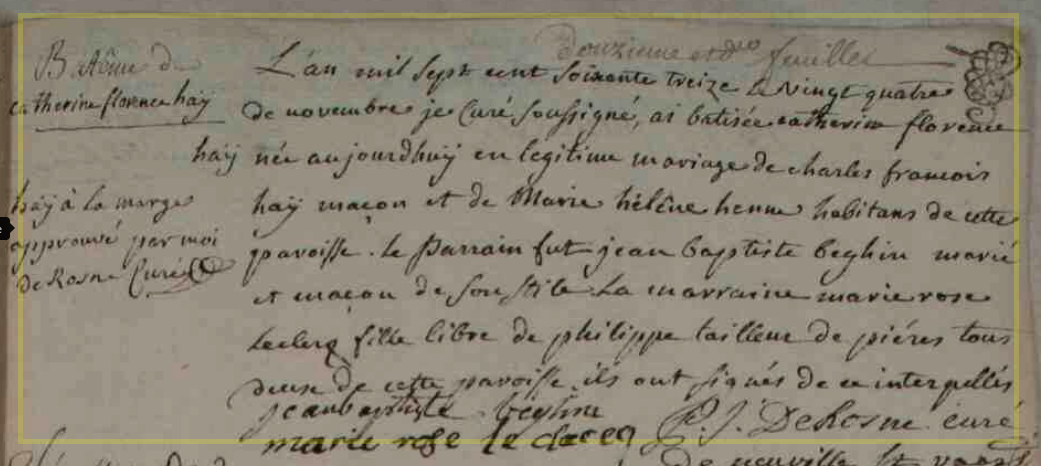 douzieme et d.ro feuillet
Batême de
catherine florence haÿ
L'an mil sept cent soixante treize le vingt quatre
de novembre je Curé soussigné, ai batisée catherine florence
haÿ née aujourdhuÿ en legitime mariage de charles francois
haÿ à la marge
approuvé par moi
DeRosne Curé
haÿ maçon et de Marie hélène henne habitans de cette
paroisse. le parrain fut jean baptiste beghin marié
et maçon de son stile La marraine marie rose
leclerq fille libre de philippe tailleur de piéres tous
deux de cette paroisse ils ont signés de ce interpellés
jeanbaptiste béghin
marie rose le clercq P. J. DeRosne curé
de neuville St vaast